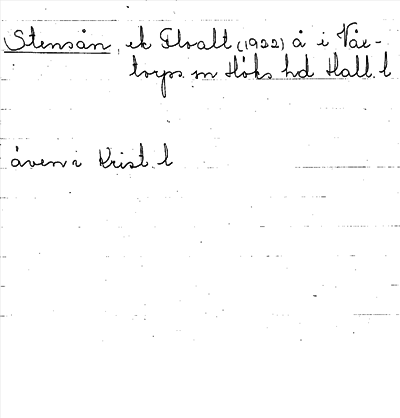 Stensån, ek Flvatt (1922) å i Våx-
torps sn Höks hd Hall. l
även i Krist. l